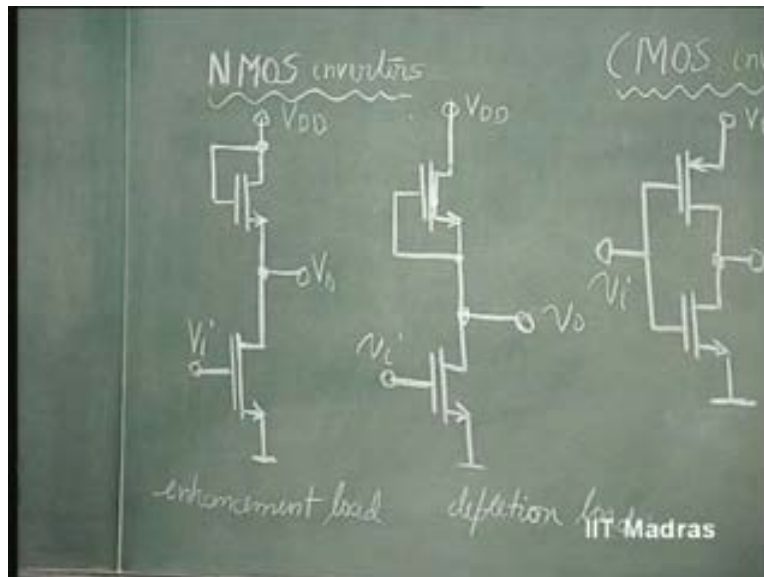 NMOS inverters
CMOS
VDD
VDD
Vo
Vi
Vi
Vo
Vi
enhancement load
depletion load
IIT Madras